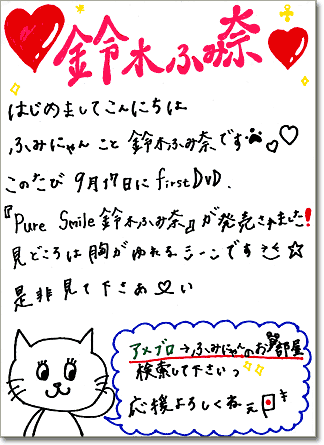 鈴木ふみ奈
はじめましてこんにちは
ふみにゃん こと 鈴木ふみ奈です
このたび 9月17日に firstDVD、
『Pure Smile 鈴木ふみ奈』が発売されました!
見どころは胸がゆれるシーンです ☆
是非見て下さぁ♡い
アメブロ→ふみにゃんのお部屋
検索して下さいっ
応援よろしくねぇ